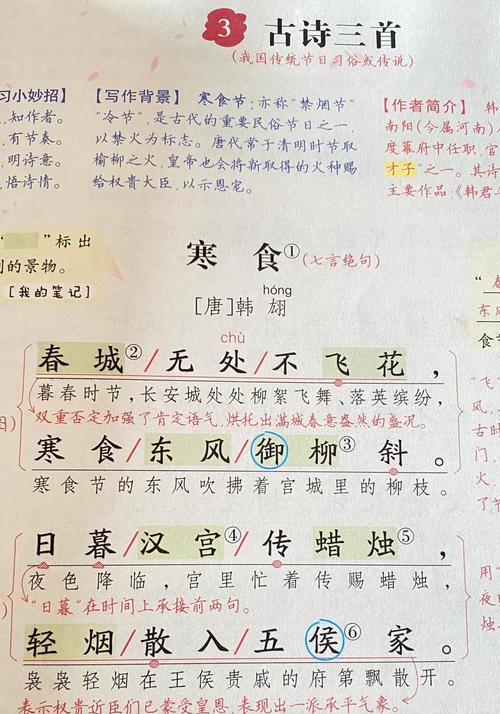 3 古诗三首
(我国传统节日习俗或传说)
习小妙招】
,知作者。
,有节奏。
,明诗意。
,悟诗情。
【写作背景】 寒食节:亦称“禁烟节”
“冷节”,是古代的重要民俗节日之一,
以禁火为标志。唐代常于清明时节取
榆柳之火,皇帝也会将新取得的火种赐
给权贵大臣,以示恩宠。
【作者简介】
南阳(今属河南)
度幕府中任职,官
才子”之一。其诗
主要作品:《韩君平
“ ”标出
的景物。
[我的笔记]
寒食①(七言绝句)
hóng
[唐]韩翃
chù
春城②/无处/不飞花,
暮春时节,长安城处处柳絮飞舞、落英缤纷,
双重否定加强了肯定语气,烘托出满城春意盎然的盛况。
寒食/东风/御柳③斜。
寒食节的东风吹拂着宫城里的柳枝。
日暮/汉宫④/传蜡烛⑤,
夜色降临,宫里忙着传赐蜡烛,
“日暮”在时间上承接前两句。
轻烟/散入/五侯⑥家。
袅袅轻烟在王侯贵戚的府第飘散开。
表示权贵近臣们已蒙受皇恩,表现出一派承平气象。
“春
东风
食节
“飞
花,
风,
古时
门,
火,
“用
夜时
烛